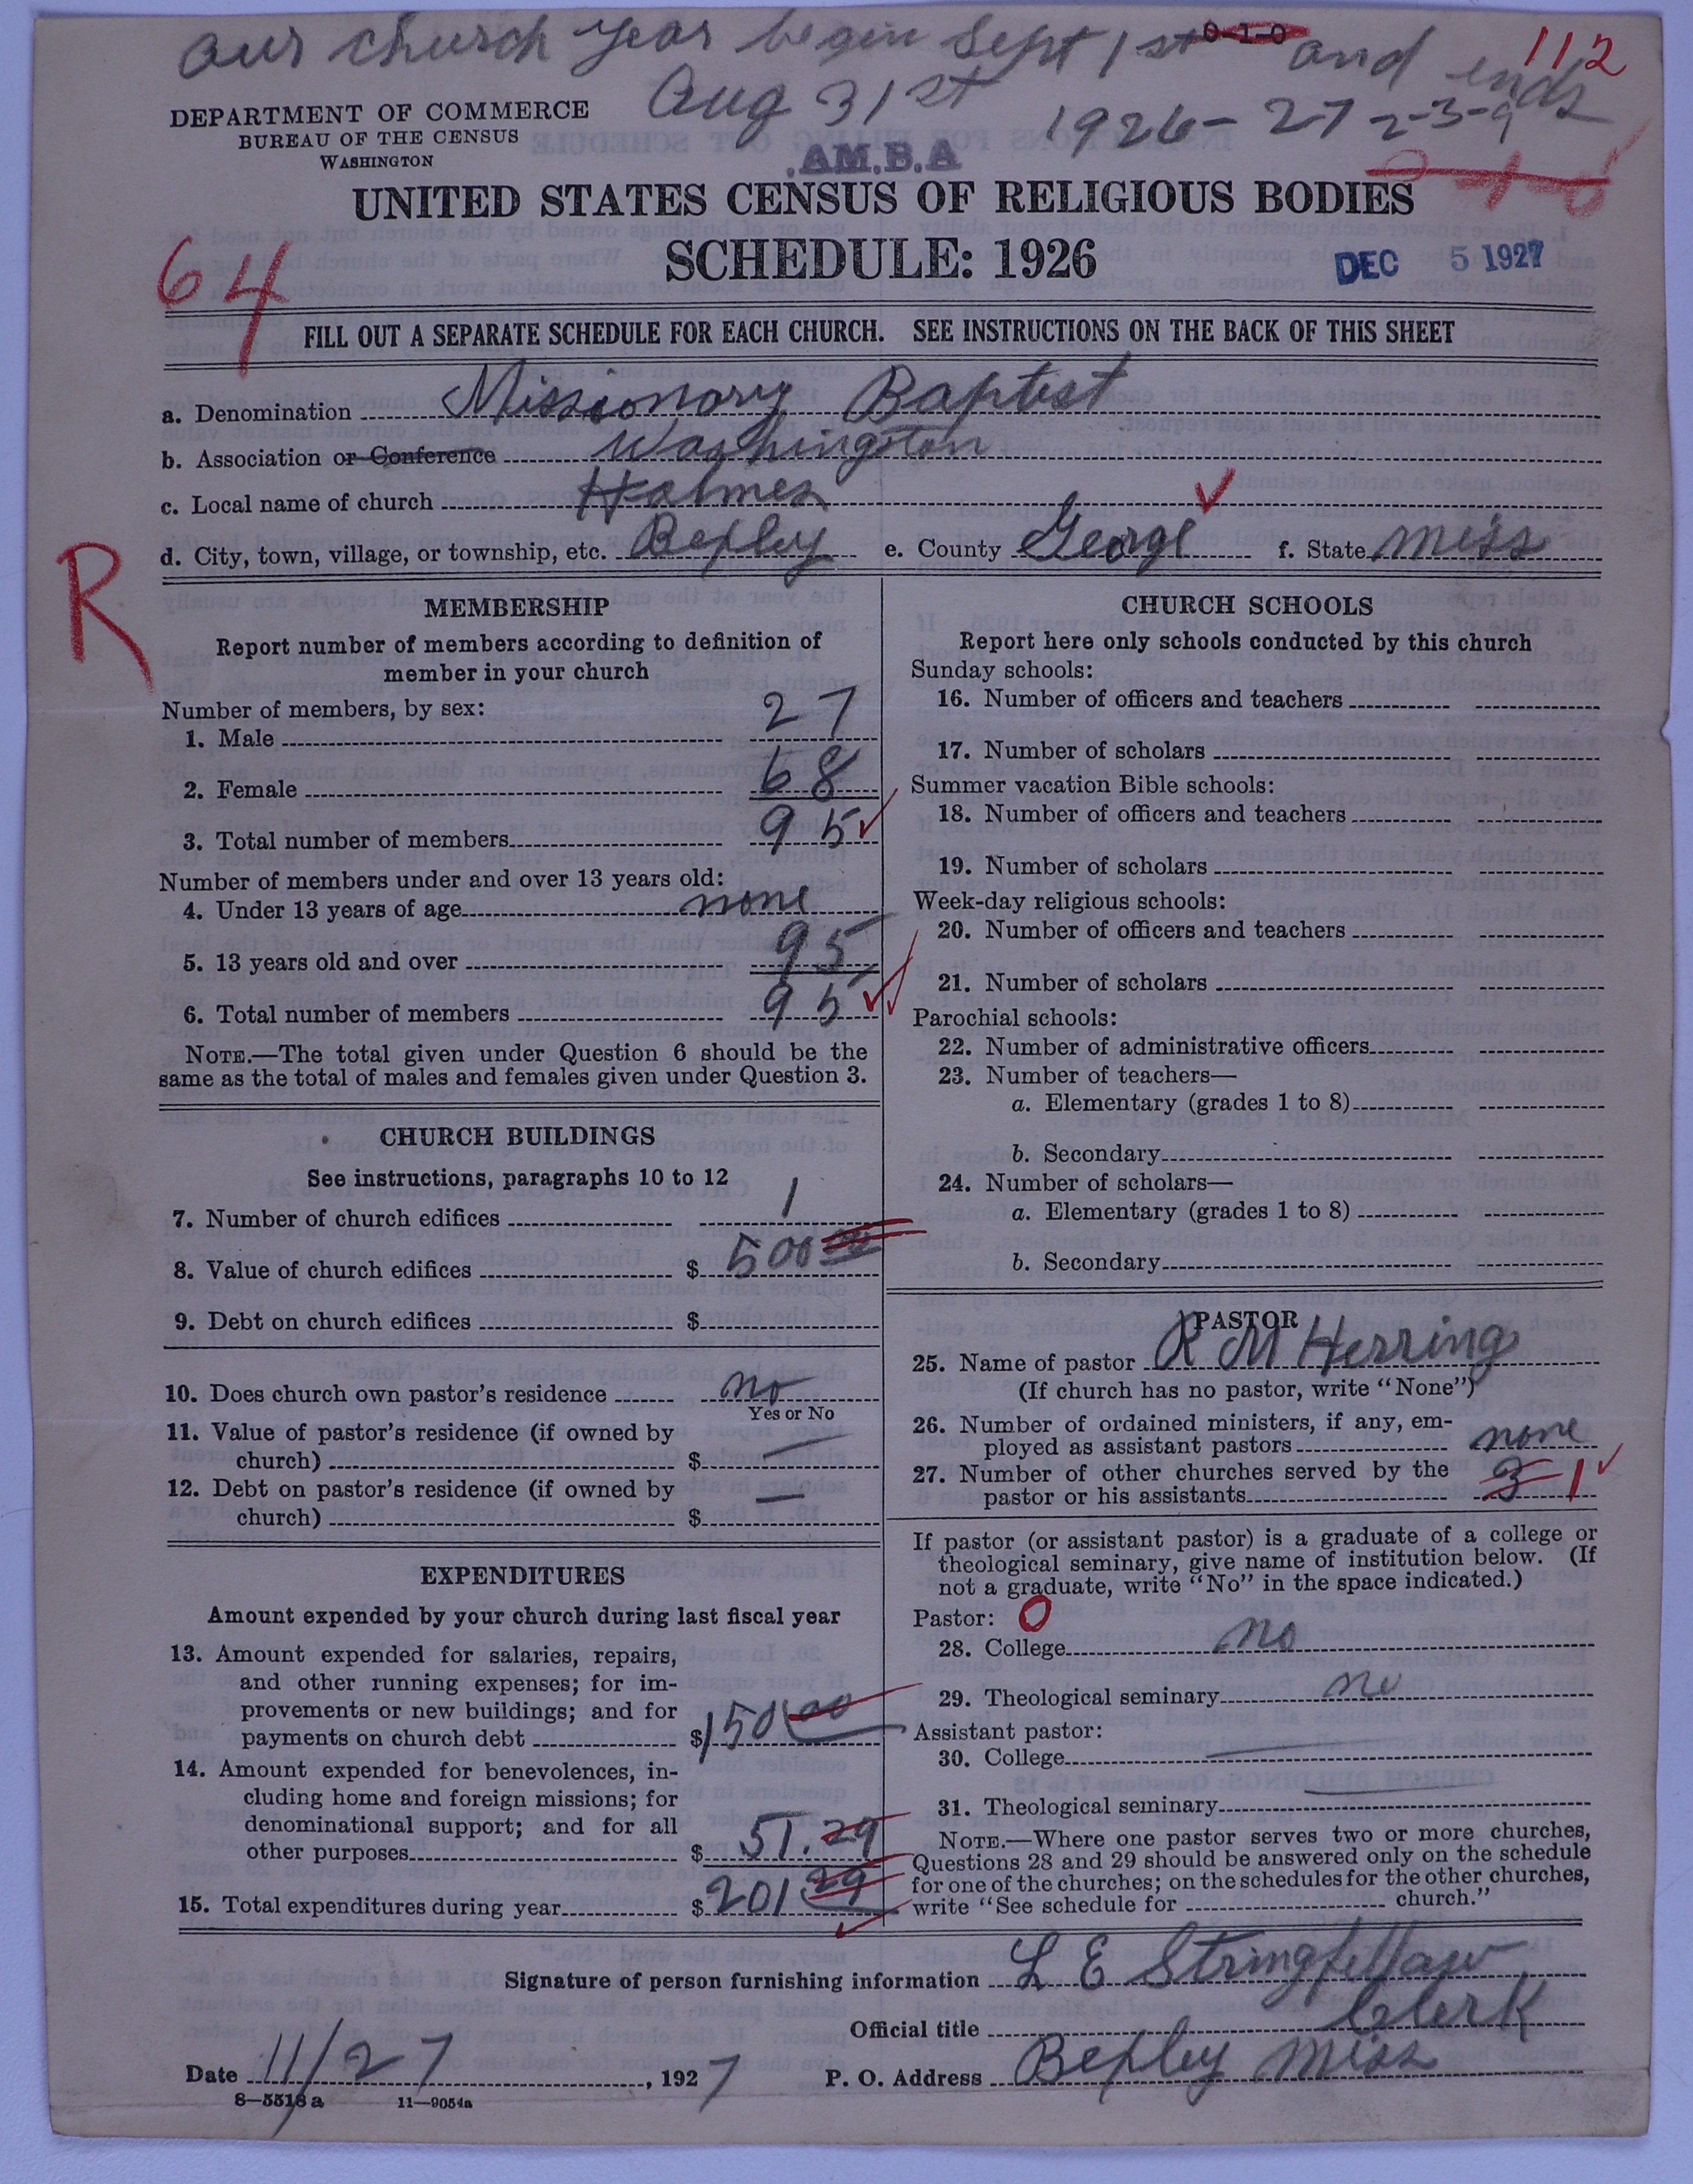 our church year begin Sept 1st and ends
112
Aug 31st 1926-27 2-3-9
DEPARTMENT OF COMMERCE
BUREAU OF THE CENSUS
WASHINGTON
AM.B.A
UNITED STATES CENSUS OF RELIGIOUS BODIES
SCHEDULE: 1926
DEC 5 1927
64
FILL OUT A SEPARATE SCHEDULE FOR EACH CHURCH. SEE INSTRUCTIONS ON THE BACK OF THIS SHEET
a. Denomination Missionary Baptist
b. Association or Conference Washington
c. Local name of church Holmes
d. City, town, village, or township, etc. Bexley e. County George f. State Miss
R
MEMBERSHIP
Report number of members according to definition of
member in your church
Number of members, by sex:
1. Male 27
2. Female 68
3. Total number of members 95
Number of members under and over 13 years old:
4. Under 13 years of age none
5. 13 years old and over 95
6. Total number of members 95
NOTE.—The total given under Question 6 should be the
same as the total of males and females given under Question 3.
CHURCH BUILDINGS
See instructions, paragraphs 10 to 12
7. Number of church edifices 1
8. Value of church edifices $ 500 00
9. Debt on church edifices $
10. Does church own pastor's residence no
Yes or No
11. Value of pastor's residence (if owned by
church) $ —
12. Debt on pastor's residence (if owned by
church) $ —
EXPENDITURES
Amount expended by your church during last fiscal year
13. Amount expended for salaries, repairs,
and other running expenses; for im-
provements or new buildings; and for
payments on church debt $ 150 00
14. Amount expended for benevolences, in-
cluding home and foreign missions; for
denominational support; and for all
other purposes $ 51.29
15. Total expenditures during year $ 201 29
CHURCH SCHOOLS
Report here only schools conducted by this church
Sunday schools:
16. Number of officers and teachers
17. Number of scholars
Summer vacation Bible schools:
18. Number of officers and teachers
19. Number of scholars
Week-day religious schools:
20. Number of officers and teachers
21. Number of scholars
Parochial schools:
22. Number of administrative officers
23. Number of teachers—
a. Elementary (grades 1 to 8)
b. Secondary
24. Number of scholars—
a. Elementary (grades 1 to 8)
b. Secondary
PASTOR
25. Name of pastor R M Herring
(If church has no pastor, write "None")
26. Number of ordained ministers, if any, em-
ployed as assistant pastors none
27. Number of other churches served by the
pastor or his assistants 3 1
If pastor (or assistant pastor) is a graduate of a college or
theological seminary, give name of institution below. (If
not a graduate, write "No" in the space indicated.)
Pastor: O
28. College no
29. Theological seminary no
Assistant pastor:
30. College —
31. Theological seminary —
NOTE.—Where one pastor serves two or more churches,
Questions 28 and 29 should be answered only on the schedule
for one of the churches; on the schedules for the other churches,
write "See schedule for church."
Signature of person furnishing information L E Stringfellow
Official title Clerk
Date 11/27, 1927 P. O. Address Bexley Miss
8—5518 a 11—9054a